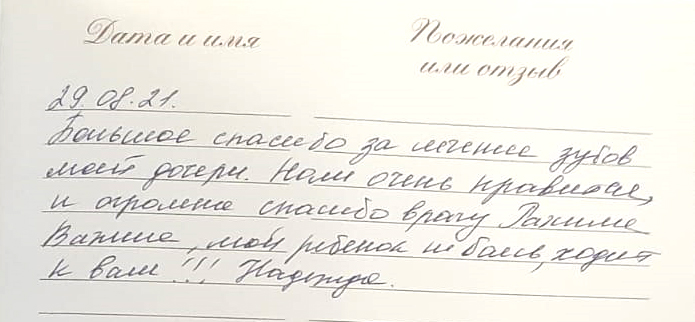 Дата и имя
Пожелания
или отзыв
29.08.21.
Большое спасибо за лечение зубов
моей дочери. Нам очень нравится,
и огромное спасибо врачу
мой ребенок не боясь, ходит
к вам!!! Надежда.